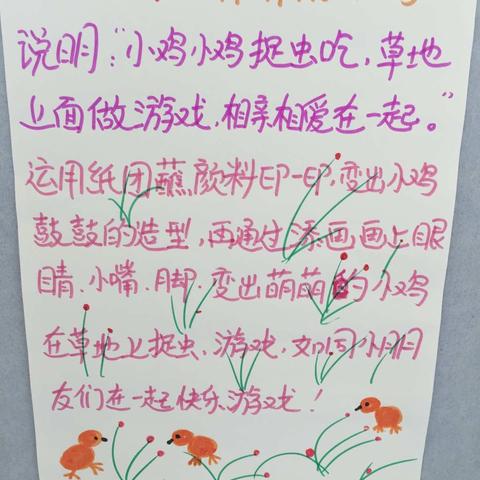 说明："小鸡小鸡捉虫吃，草地
上面做游戏，相亲相爱在一起。"
运用纸团蘸颜料印一印，变出小鸡
鼓鼓的造型，再通过添画，画上眼
睛、小嘴、脚，变出萌萌的小鸡
在草地上捉虫、游戏，如同小朋
友们在一起快乐游戏！